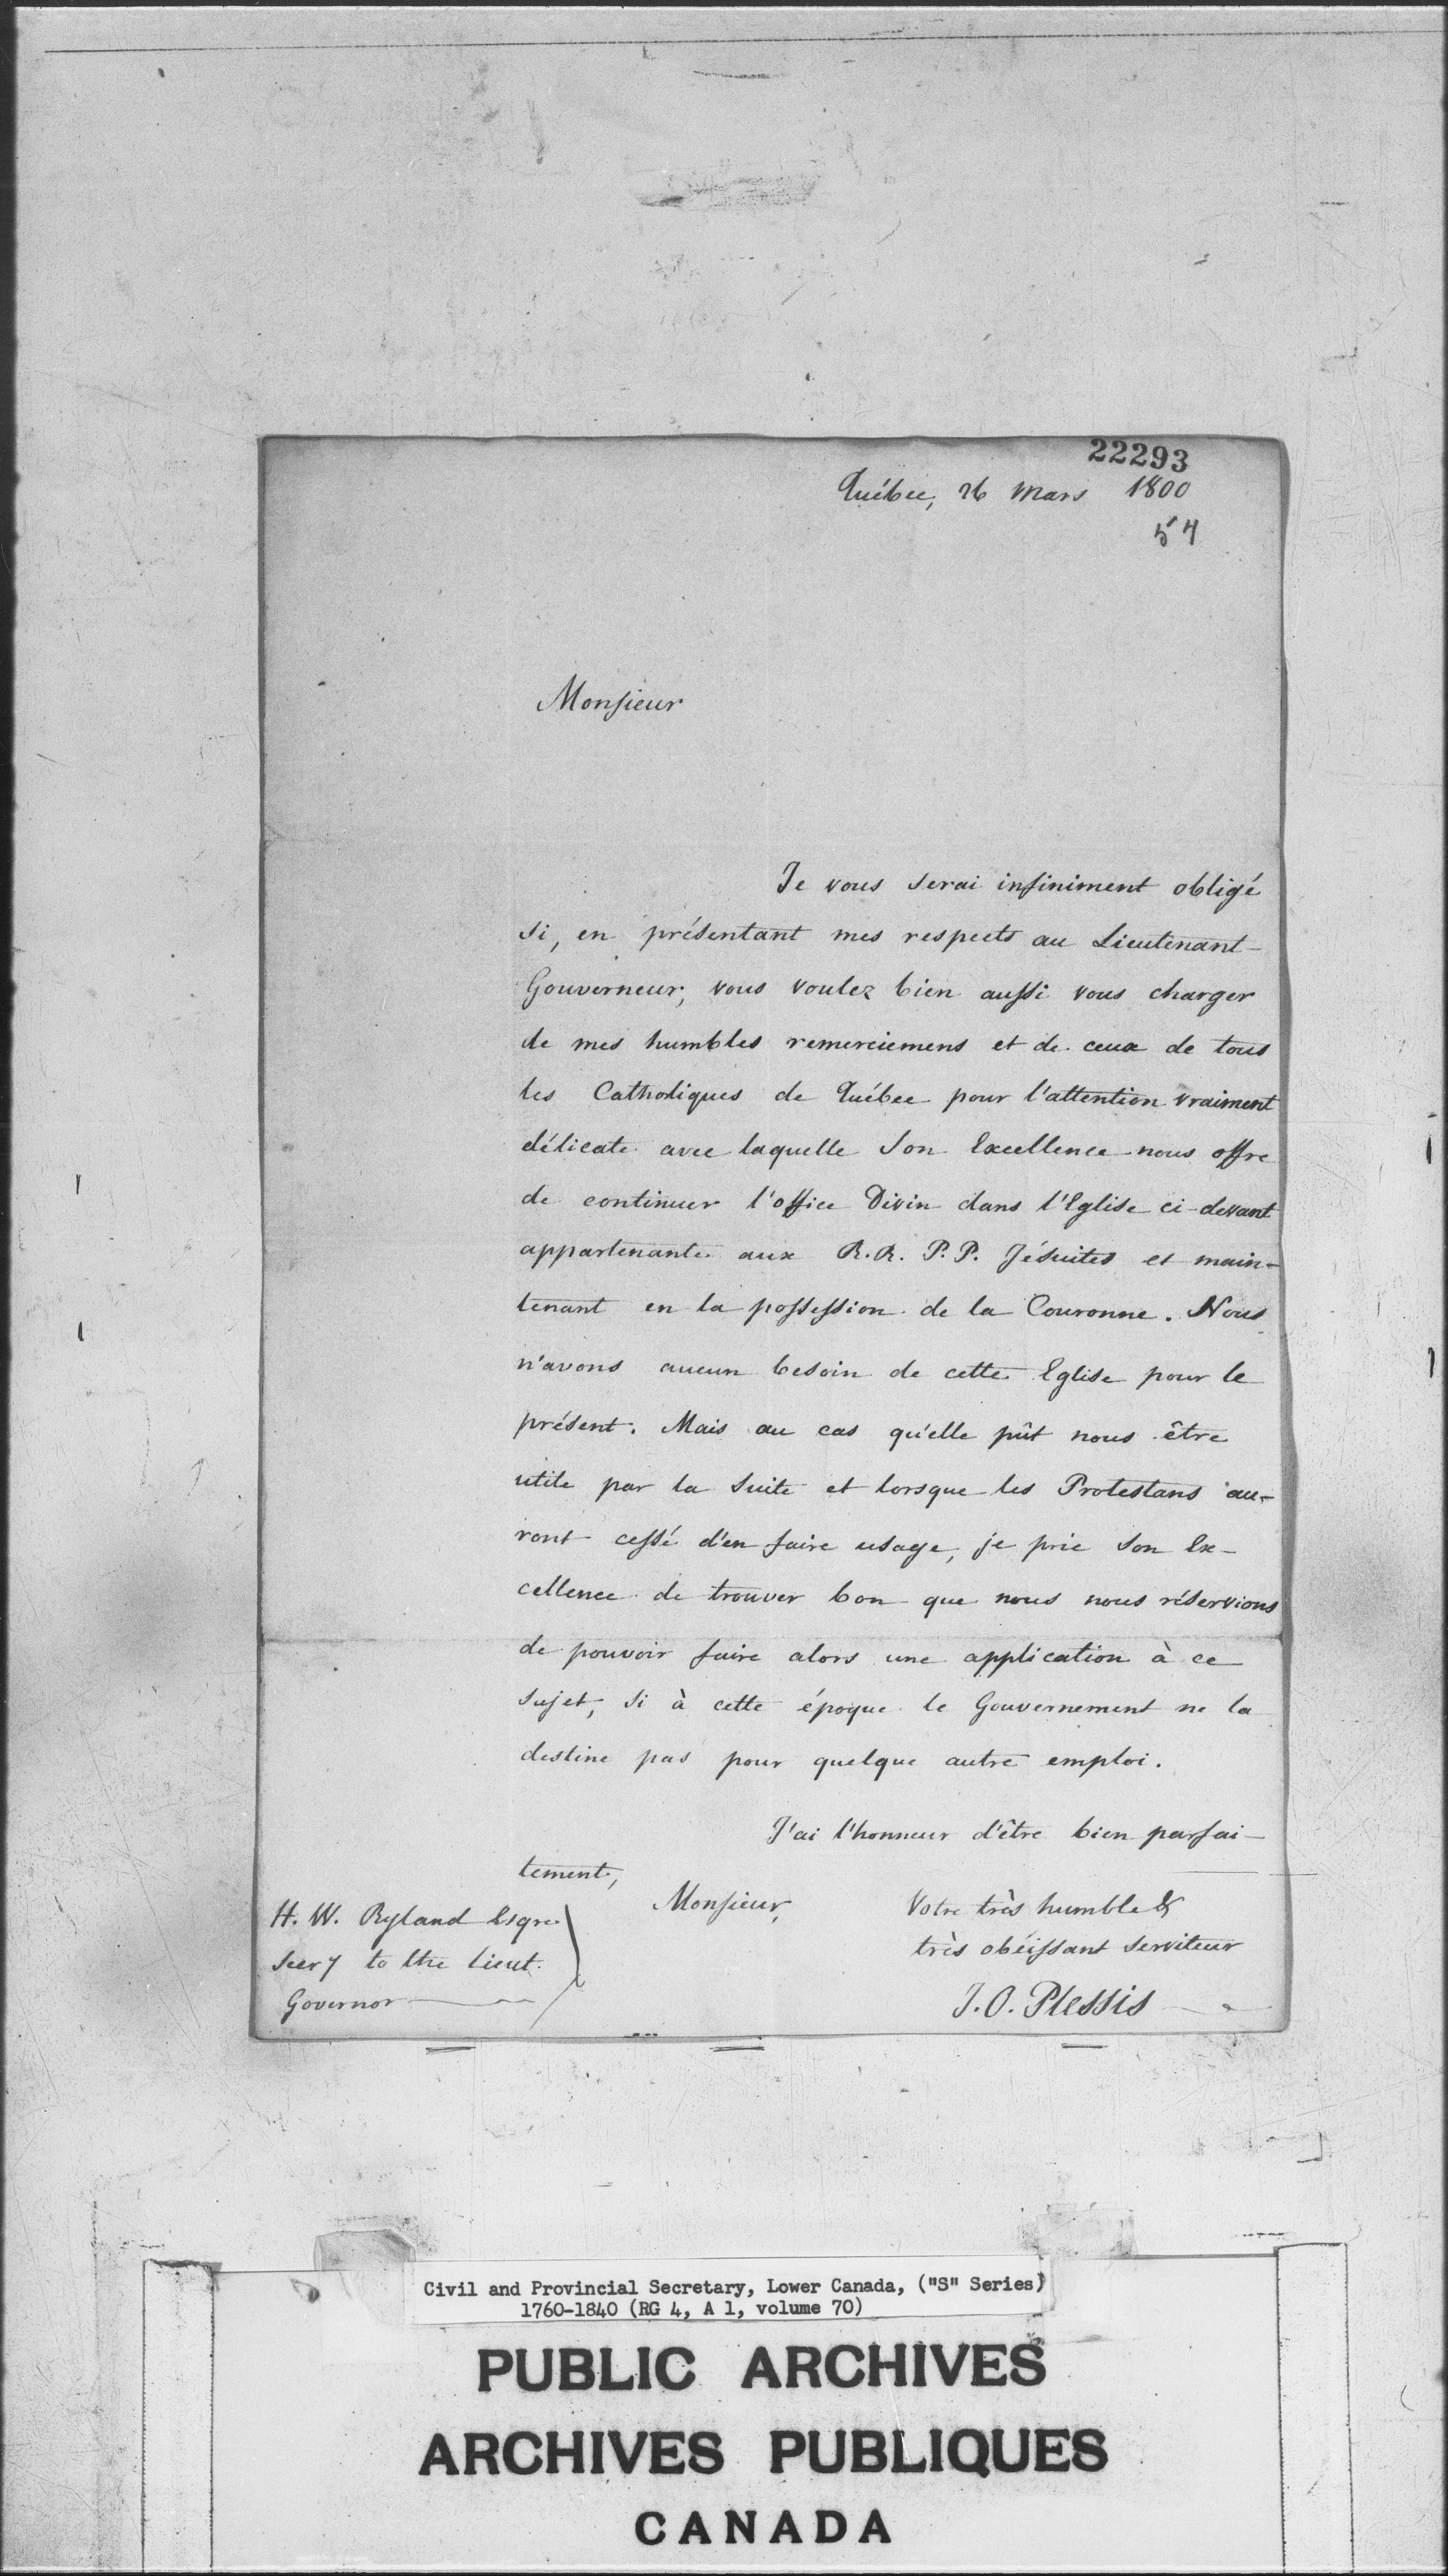 22293
Québec, 26 Mars 1800
54
Monsieur
Je vous serai infiniment obligé
si, en présentant mes respects au Lieutenant-
Gouverneur, vous voulez bien aussi vous charger
de mes humbles remerciemens et de ceux de tous
les Catholiques de Québec pour l'attention vraiment
délicate avec laquelle Son Excellence nous offre
de continuer l'office Divin dans l'Eglise ci-devant
appartenante aux R.R. P.P. Jésuites et main-
tenant en la possession de la Couronne. Nous
n'avons aucun besoin de cette Eglise pour le
présent. Mais au cas qu'elle pût nous être
utile par la suite et lorsque les Protestans au-
ront cessé d'en faire usage, je prie Son Ex-
cellence de trouver bon que nous nous réservions
de pouvoir faire alors une application à ce
sujet, si à cette époque le Gouvernement ne la
destine pas pour quelque autre emploi.
J'ai l'honneur d'être bien parfai-
tement,
Monsieur,
Votre très humble &
très obéissant serviteur
J.O. Plessis
H. W. Ryland Esqre
Secry to the Lieut.
Governor
Civil and Provincial Secretary, Lower Canada, ("S" Series)
1760-1840 (RG 4, A 1, volume 70)
PUBLIC ARCHIVES
ARCHIVES PUBLIQUES
CANADA